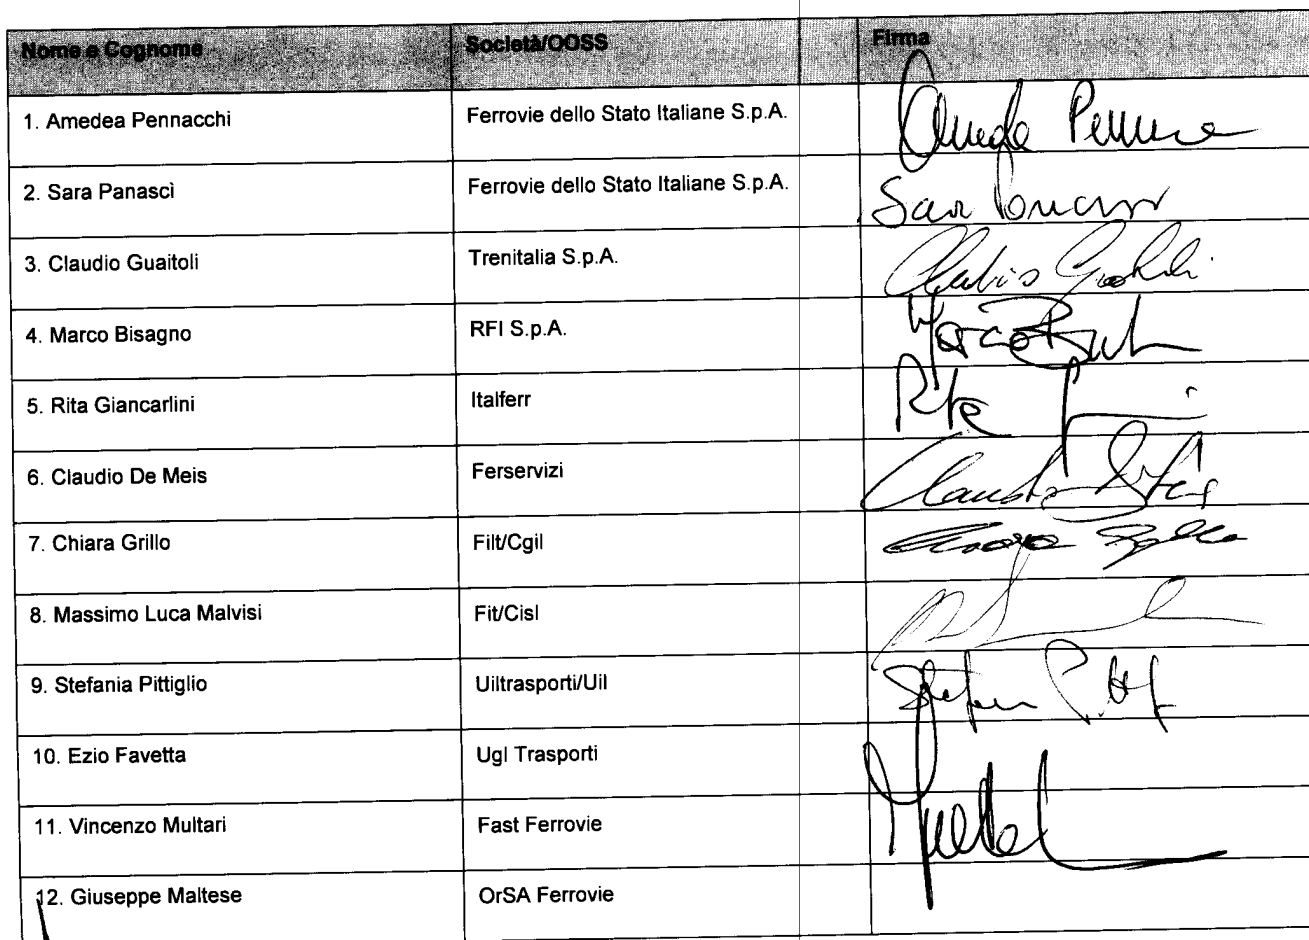 Nome e Cognome Società/OOSS Firma
1. Amedea Pennacchi Ferrovie dello Stato Italiane S.p.A.
2. Sara Panascì Ferrovie dello Stato Italiane S.p.A. Sara
3. Claudio Guaitoli Trenitalia S.p.A. Claudio
4. Marco Bisagno RFI S.p.A. Marco
5. Rita Giancarlini Italferr Rita
6. Claudio De Meis Ferservizi Claudio
7. Chiara Grillo Filt/Cgil
8. Massimo Luca Malvisi Fit/Cisl
9. Stefania Pittiglio Uiltrasporti/Uil
10. Ezio Favetta Ugl Trasporti
11. Vincenzo Multari Fast Ferrovie
12. Giuseppe Maltese OrSA Ferrovie